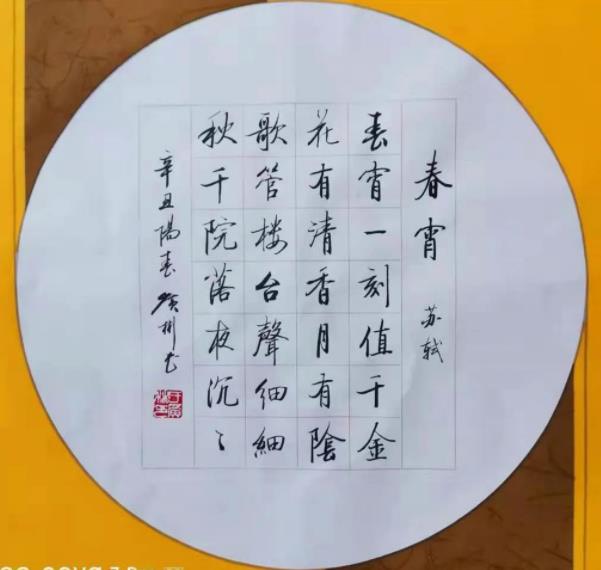 春宵
苏轼
春宵一刻值千金
花有清香月有陰
歌管楼台聲细細
秋千院落夜沉〻
辛丑陽春 广彬书